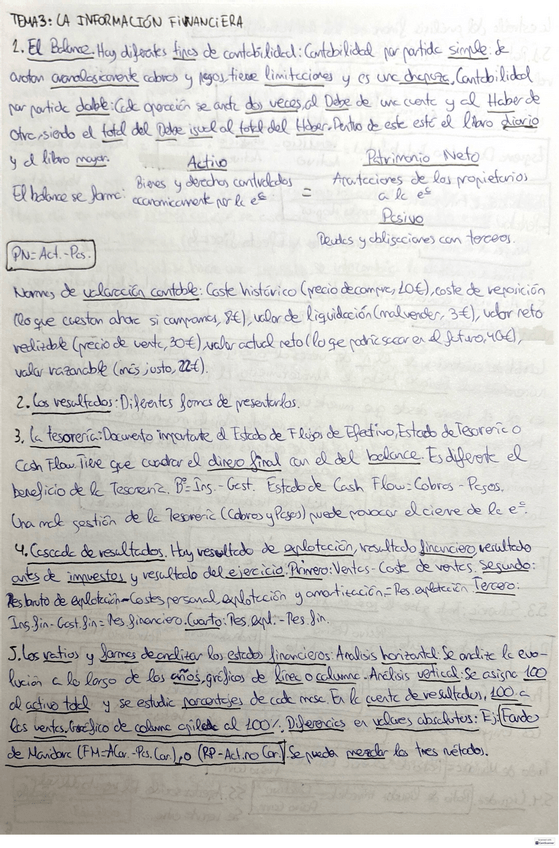 TEMA3: LA INFORMACIÓN FINANCIERA
1. El Balance. Hay diferentes tipos de contabilidad: Contabilidad por partida simple: Se
anotan cronológicamente cobros y pagos, tiene limitaciones y es una chapuza. Contabilidad
por partida doble: Cada operación se anota dos veces, al Debe de una cuenta y al Haber de
otra, siendo el total del Debe igual al total del Haber. Dentro de este está el libro diario
y el libro mayor.
Activo Patrimonio Neto
El balance se forma: Bienes y derechos controlados económicamente por la eª = Aportaciones de los propietarios a la eª
Pasivo
Deudas y obligaciones con terceros.
PN=Act.-Pas.
Normas de valoración contable: Coste histórico (precio de compra, 10€), coste de reposición
(lo que cuestan ahora si compramos, 8€), valor de liquidación (malvender, 3€), valor neto
realizable (precio de venta, 30€), valor actual neto (lo que podría sacar en el futuro, 40€),
valor razonable (más justo, 22€).
2. Los resultados: Diferentes formas de presentarlos.
3. La tesorería: Documento importante el Estado de Flujos de Efectivo, Estado de Tesorería o
Cash Flow. Tiene que cuadrar el dinero final con el del balance. Es diferente el
beneficio de la Tesorería. Bº=Ing.-Gast. Estado de Cash Flow: Cobros-Pagos.
Una mala gestión de la Tesorería (Cobros y Pagos) puede provocar el cierre de la eª.
4. Cascada de resultados. Hay resultado de explotación, resultado financiero, resultado
antes de impuestos y resultado del ejercicio. Primero: Ventas-Coste de ventas. Segundo:
Res bruto de explotación-Costes personal, explotación y amortización=Res. explotación Tercero:
Ing. fin-Gast. fin=Res. financiero. Cuarto: Res. expl.-Res. fin.
5. Los ratios y formas de analizar los estados financieros: Análisis horizontal: Se analiza la evo-
lución a lo largo de los años, gráficos de línea o columna. Análisis vertical: Se asigna 100
al activo total y se estudia porcentajes de cada masa. En la cuenta de resultados, 100 a
las ventas. Gráfico de columna apilada al 100%. Diferencias en valores absolutos: Ej: Fondo
de Maniobra (FM=ACor.-Pas.Cor.) o (RP-Act.no Cor.). Se puede mezclar los tres métodos.